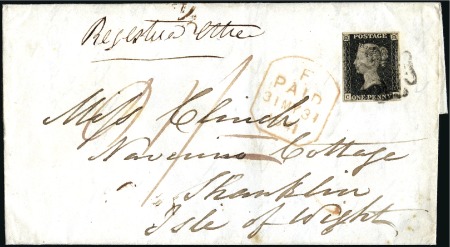 Registered Letter
POSTAGE
ONE PENNY
F
PAID
31 31
1841
Miss Clinch
Cottage
Shanklin
Isle of Wight